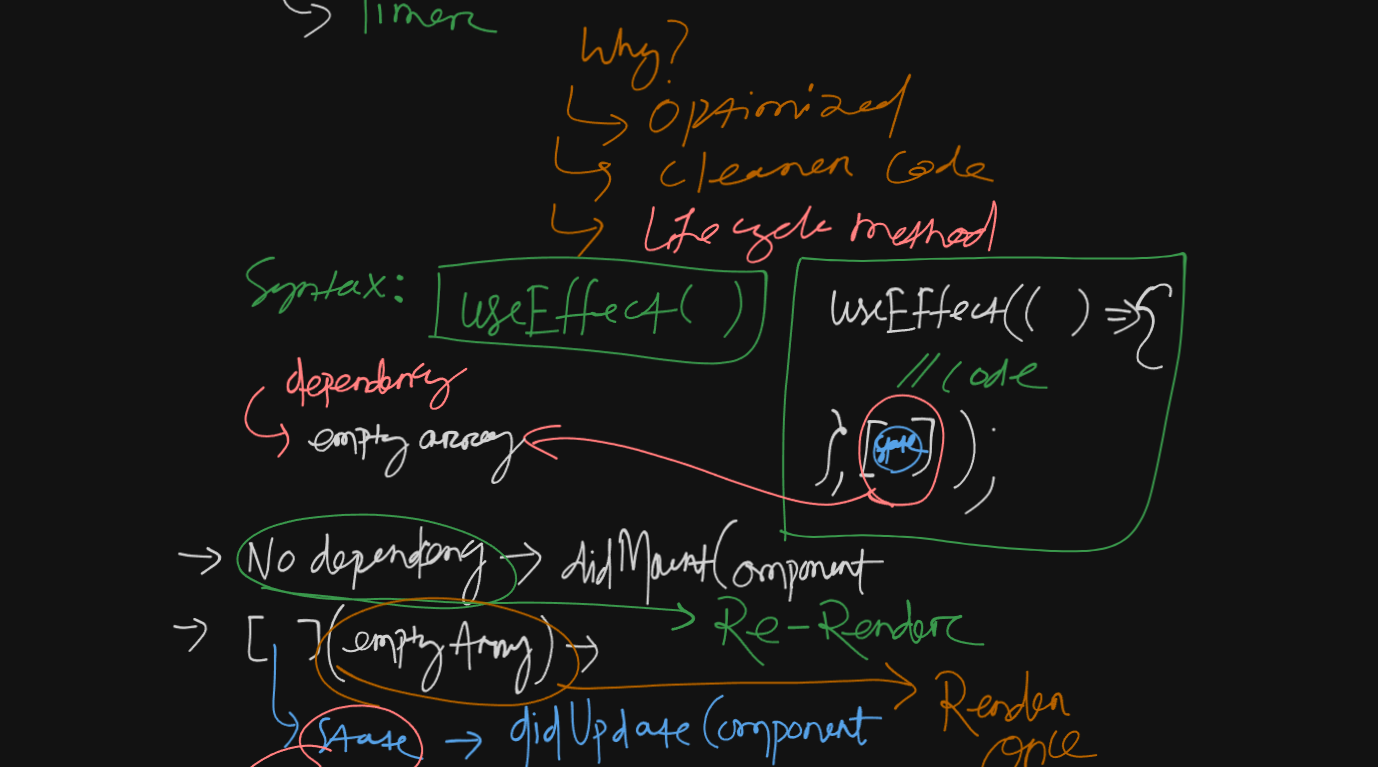 Timer
Why?
Optimized
Cleaner Code
Lifecycle method
Syntax: useEffect( )
useEffect(( ) => {
// Code
}, [state] );
dependency
empty array
→ No dependency → didMountComponent
Re-Render
→ [ ] (empty Array) →
Render
once
State → didUpdateComponent